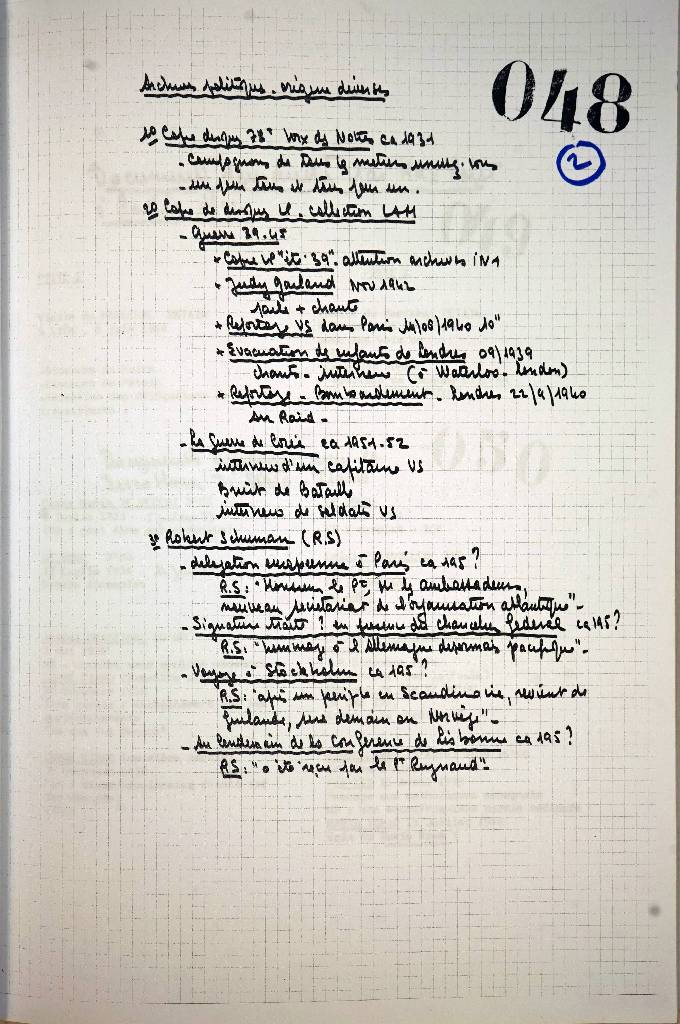 Archives politiques. origine diverses
048
2
1º Copie disques 78t Voix des Nôtres ca 1931
- Compagnons de tous les métiers unissez-vous
- un pour tous et tous pour un.
2º Copie de disques LP. collection LAM
- Guerre 39.45
* Copie LP "été 39". attention archives INA
* Judy Garland Nov 1942
parle + chante
* Reportage US dans Paris 14/08/1940 10"
* Evacuation de enfants de Londres 09/1939
chants - interviews (à Waterloo - London)
* Reportage - Bombardement - Londres 22/9/1940
Air Raid -
- La Guerre de Corée ca 1951-52
interview d'un capitaine US
Bruit de Bataille
interviews de soldats US
3º Robert Schuman (R.S)
- délégation européenne à Paris ca 195?
R.S: "Monsieur le Pt, MM les ambassadeurs,
nouveau secrétariat de l'organisation atlantique"-
- Signature traité ? en présence du chancelier fédéral ca 195?
R.S: "hommage à l'Allemagne désormais pacifique"-
- Voyage à Stockholm ca 195?
R.S: "après un périple en Scandinavie, revient de
Finlande, sera demain en Norvège"-
- Au lendemain de la Conférence de Lisbonne ca 195?
R.S: "a été reçu par le Pt Reynaud"-